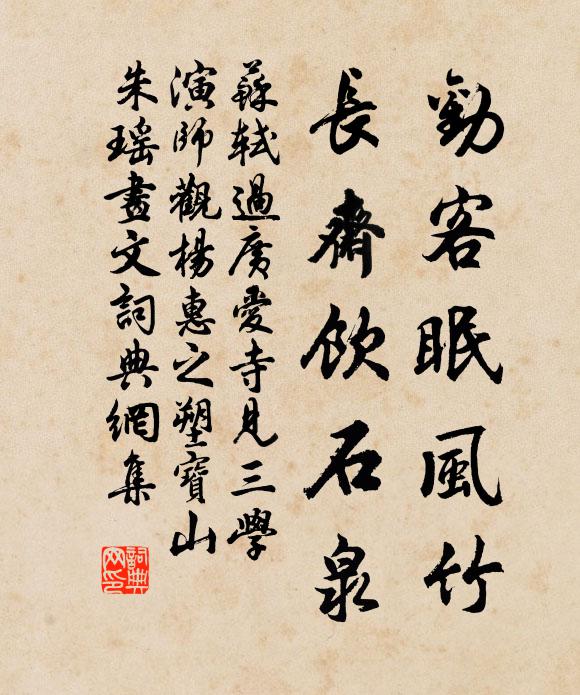 勸客眠風竹
長齋飲石泉
蘇軾過廣愛寺見三學
演師觀楊惠之塑寶山
朱瑶畫文詞典網集
詞典
网印